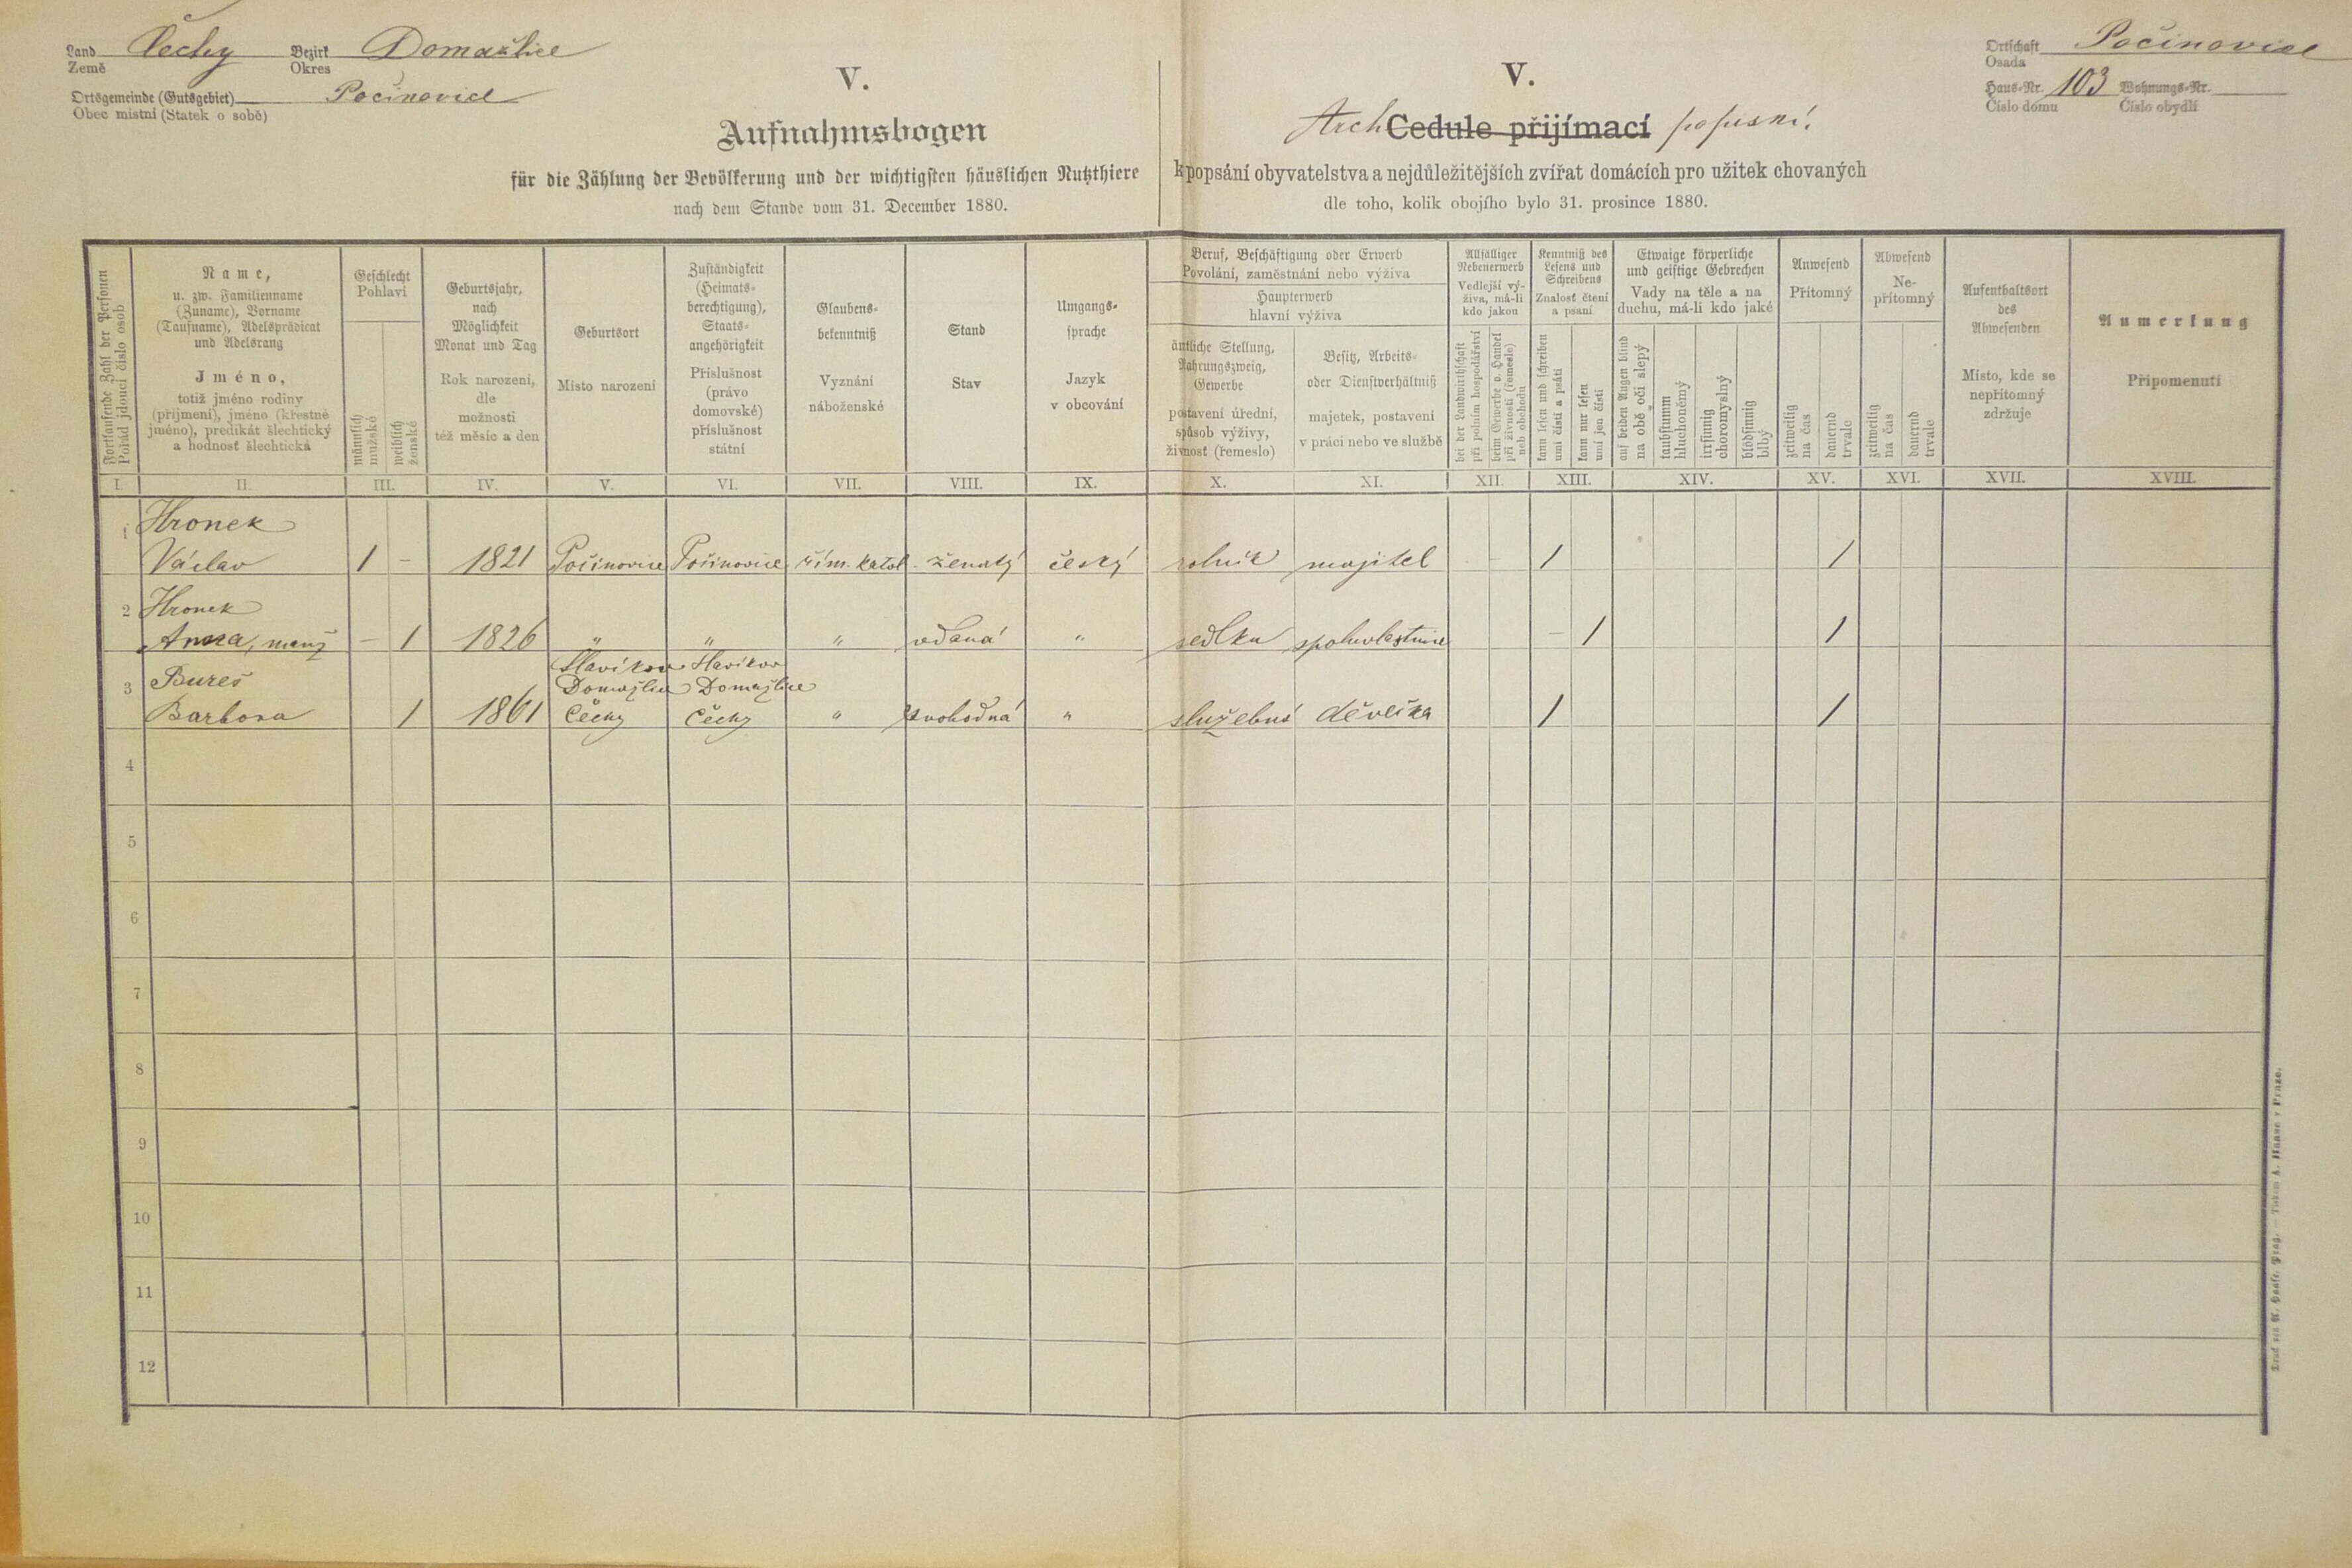 Land Čechy Bezirk Domažlice
Země Okres
Ortsgemeinde (Gutsgebiet) Pocinovice
Obec místní (Statek o sobě)
V.
Aufnahmsbogen
für die Zählung der Bevölkerung und der wichtigsten häuslichen Nutzthiere
nach dem Stande vom 31. December 1880.
V.
Arch Cedule přijímací popisní.
k popsání obyvatelstva a nejdůležitějších zvířat domácích pro užitek chovaných
dle toho, kolik obojího bylo 31. prosince 1880.
Ortschaft Počinovice
Osada
Haus-Nr. 103 Wohnungs-Nr.
Číslo domu Číslo obydlí
Fortlaufende Zahl der Personen
Pořád jdoucí číslo osob
Name,
u. zw. Familienname
(Zuname), Vorname
(Taufname), Adelsprädicat
und Adelsrang
Jméno,
totiž jméno rodiny
(příjmení), jméno (křestné
jméno), predikát šlechtický
a hodnosť šlechtická
Geschlecht
Pohlaví
männlich
mužské
weiblich
ženské
Geburtsjahr,
nach
Möglichkeit
Monat und Tag
Rok narození,
dle
možnosti
též měsíc a den
Geburtsort
Místo narození
Zuständigkeit
(Heimats-
berechtigung),
Staats-
angehörigkeit
Příslušnost
(právo
domovské)
příslušnost
státní
Glaubens-
bekenntniß
Vyznání
náboženské
Stand
Stav
Umgangs-
sprache
Jazyk
v obcování
Beruf, Beschäftigung oder Erwerb
Povolání, zaměstnání nebo výživa
Haupterwerb
hlavní výživa
ämtliche Stellung,
Nahrungszweig,
Gewerbe
postavení úřední,
spůsob výživy,
živnosť (řemeslo)
Besitz, Arbeits-
oder Dienstverhältniß
majetek, postavení
v práci nebo ve službě
Allfälliger
Nebenerwerb
Vedlejší vý-
živa, má-li
kdo jakou
bei der Landwirthschaft
při polním hospodářství
beim Gewerbe o. Handel
při živnosti (řemesle)
neb obchodu
Kenntniß des
Lesens und
Schreibens
Znalosť čtení
a psaní
kann lesen und schreiben
umí čísti a psáti
kann nur lesen
umí jen čísti
Etwaige körperliche
und geistige Gebrechen
Vady na těle a na
duchu, má-li kdo jaké
auf beiden Augen blind
na obě oči slepý
taubstumm
hluchoněmý
irrsinnig
choromyslný
blödsinnig
blbý
Anwesend
Přítomný
zeitweilig
na čas
dauernd
trvale
Abwesend
Ne-
přítomný
zeitweilig
na čas
dauernd
trvale
Aufenthaltsort
des
Abwesenden
Místo, kde se
nepřítomný
zdržuje
Anmerkung
Připomenutí
I. II. III. IV. V. VI. VII. VIII. IX. X. XI. XII. XIII. XIV. XV. XVI. XVII. XVIII.
1 Hronek
Václav 1 – 1821 Pošinovice Pošinovice řím. katol. ženatý český rolník majitel – 1 1
2 Hronek
Anna, manž – 1 1826 " " " vdaná " sedlka spoluvlastnice – 1 1
Slavíkov Slavíkov
3 Bureš Domažlice Domažlice
Barbora 1 1861 Čechy Čechy " svobodná " služebná děvečka 1 1
4
5
6
7
8
9
10
11
12
Druck von A. Haase, Prag. — Tiskem A. Haase v Praze.